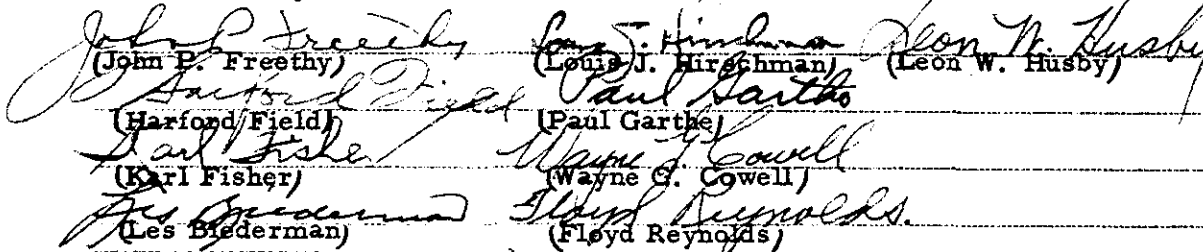 John P Freethy Louis J. Hirschman Leon W. Husby
(John P. Freethy) (Louis J. Hirschman) (Leon W. Husby)
Harford Field Paul Garthe
(Harford Field) (Paul Garthe)
Karl Fisher Wayne G. Cowell
(Karl Fisher) (Wayne G. Cowell)
Les Biederman Floyd Reynolds.
(Les Biederman) (Floyd Reynolds)